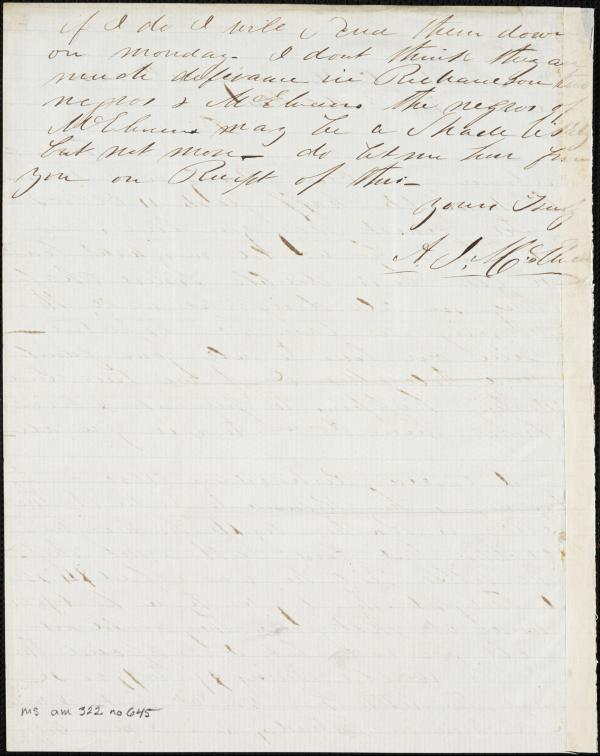 if I do I will Send them down
on monday. I dont think they a
much differance in Richardson
negros & McElveen the negros of
McElveen may be a Shade
but not more. do let me hear from
you on Receipt of this -
yours Truly
A J. McElveen
ms am 322 no 645